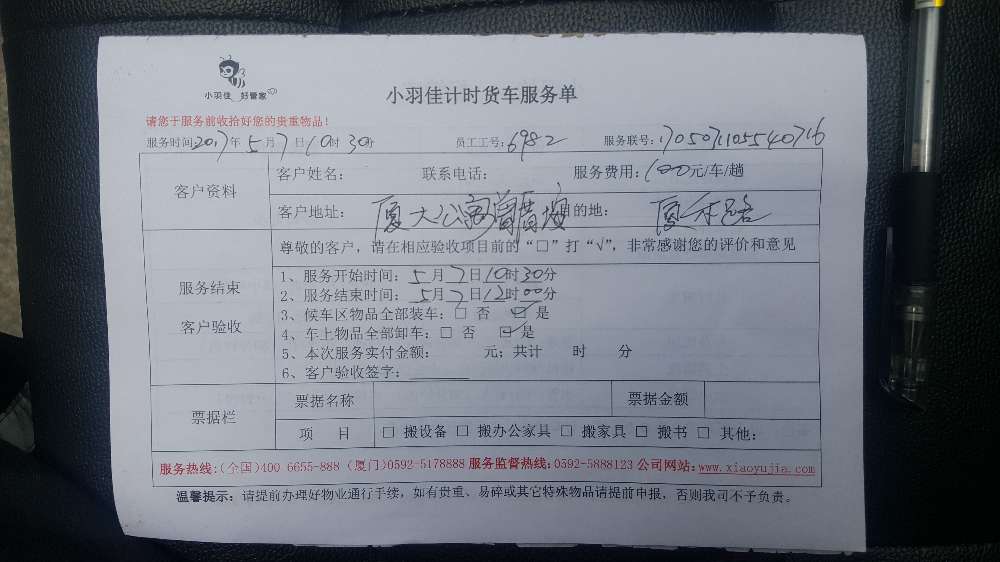 小羽佳 好管家
小羽佳计时货车服务单
请您于服务前收拾好您的贵重物品!
服务时间2017年5月7日10时30分 员工工号:6982 服务联号:1705071105540716
客户资料
客户姓名: 联系电话: 服务费用:100元/车/趟
客户地址: 厦大公寓 目的地: 厦禾路
尊敬的客户，请在相应验收项目前的“□”打“√”，非常感谢您的评价和意见
服务结束
客户验收
1、服务开始时间：5月7日10时30分
2、服务结束时间：5月7日12时00分
3、候车区物品全部装车：□ 否 ☑ 是
4、车上物品全部卸车：□ 否 ☑ 是
5、本次服务实付金额： 元；共计 时 分
6、客户验收签字：
票据栏
票据名称 票据金额
项 目 □ 搬设备 □ 搬办公家具 □ 搬家具 □ 搬书 □ 其他：
服务热线:(全国)400 6655-888 (厦门)0592-5178888 服务监督热线:0592-5888123 公司网站:www.xiaoyujia.com
温馨提示：请提前办理好物业通行手续，如有贵重、易碎或其它特殊物品请提前申报，否则我司不予负责。